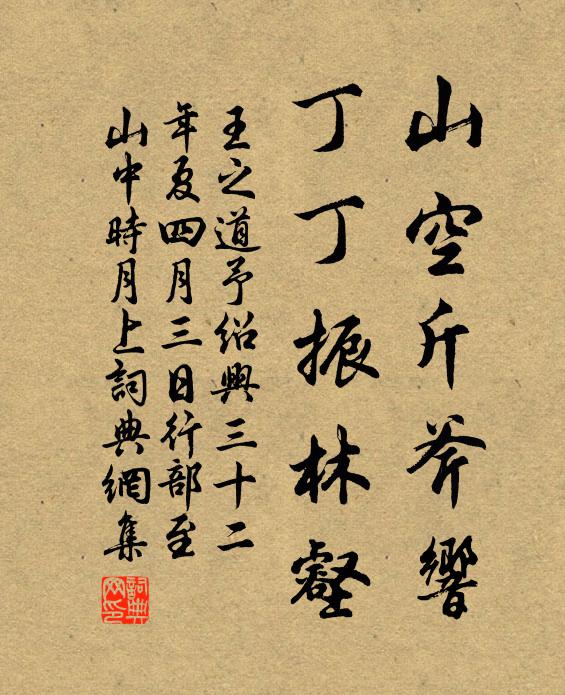 山空斤斧響
丁丁振林壑
王之道予紹興三十二
年夏四月三日行部至
山中時月上詞典網集
詞典
网印